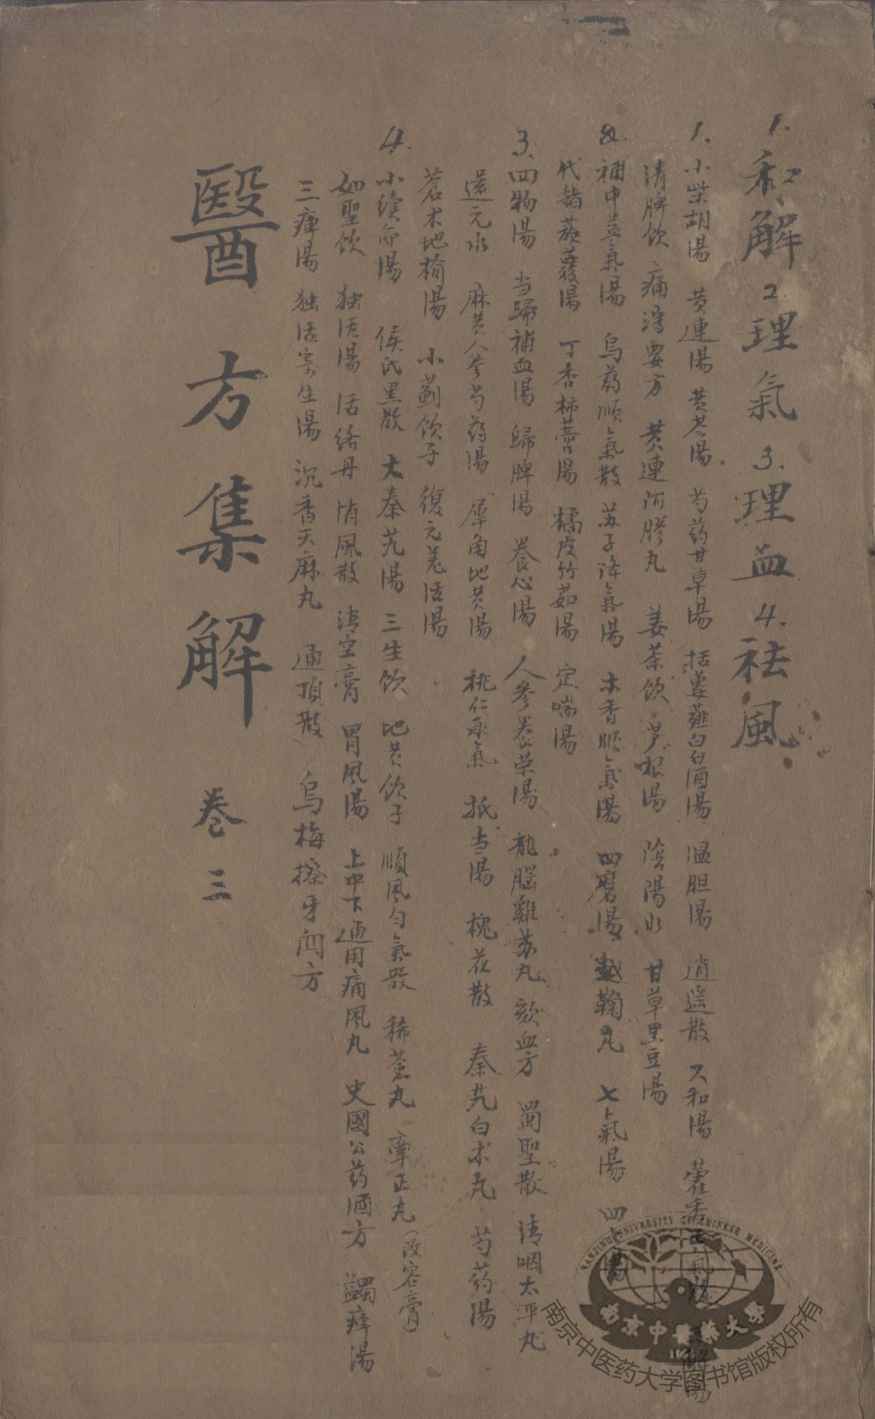 1. 和解 2 理氣 3. 理血 4. 祛風
1. 小柴胡湯 黄連湯 黄芩湯 芍药甘草湯 括蒌薤白白酒湯 温胆湯 逍遥散 六和湯 藿香
清脾饮 痛瀉要方 黄連阿膠丸 姜茶饮 芦根湯 陰陽水 甘草黑豆湯
2. 補中益氣湯 烏药順氣散 苏子降氣湯 木香順氣湯 四磨湯 越鞠丸 七氣湯 四
代赭旋覆湯 丁香柿蒂湯 橘皮竹茹湯 定喘湯
3. 四物湯 当歸補血湯 歸脾湯 養心湯 人參養荣湯 龍腦雞苏丸 欬血方 蜀聖散 清咽太平丸
還元水 麻黄人參芍药湯 犀角地黄湯 桃仁承氣 抵当湯 槐花散 秦艽白朮丸 芍药湯
蒼朮地榆湯 小蓟饮子 復元羌活湯
4. 小續命湯 侯氏黑散 大秦艽湯 三生饮 地黄饮子 順風匀氣散 稀薟丸 牽正丸(改容膏)
如聖饮 独活湯 活絡丹 消風散 清空膏 胃風湯 上中下通用痛風丸 史國公药酒方 蠲痺湯
三痺湯 独活寄生湯 沉香天麻丸 通頂散 烏梅擦牙関方
醫方集解 卷三
NANJING UNIVERSITY OF CHINESE MEDICINE
南京中醫藥大學
南京中医药大学图书馆版权所有